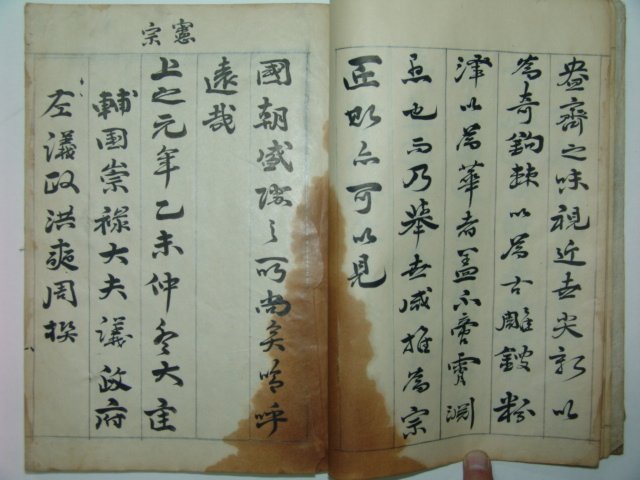 盎齊之味視近世尖新以
爲奇鉤棘以爲古雕鏤粉
澤以爲華者蓋不啻霄淵
也而乃擧世咸推爲宗
匠則亦可以見
國朝盛際之所尙矣嗚呼
遠哉
憲宗
上之元年乙未仲冬大匡
輔國崇祿大夫議政府
左議政洪奭周撰